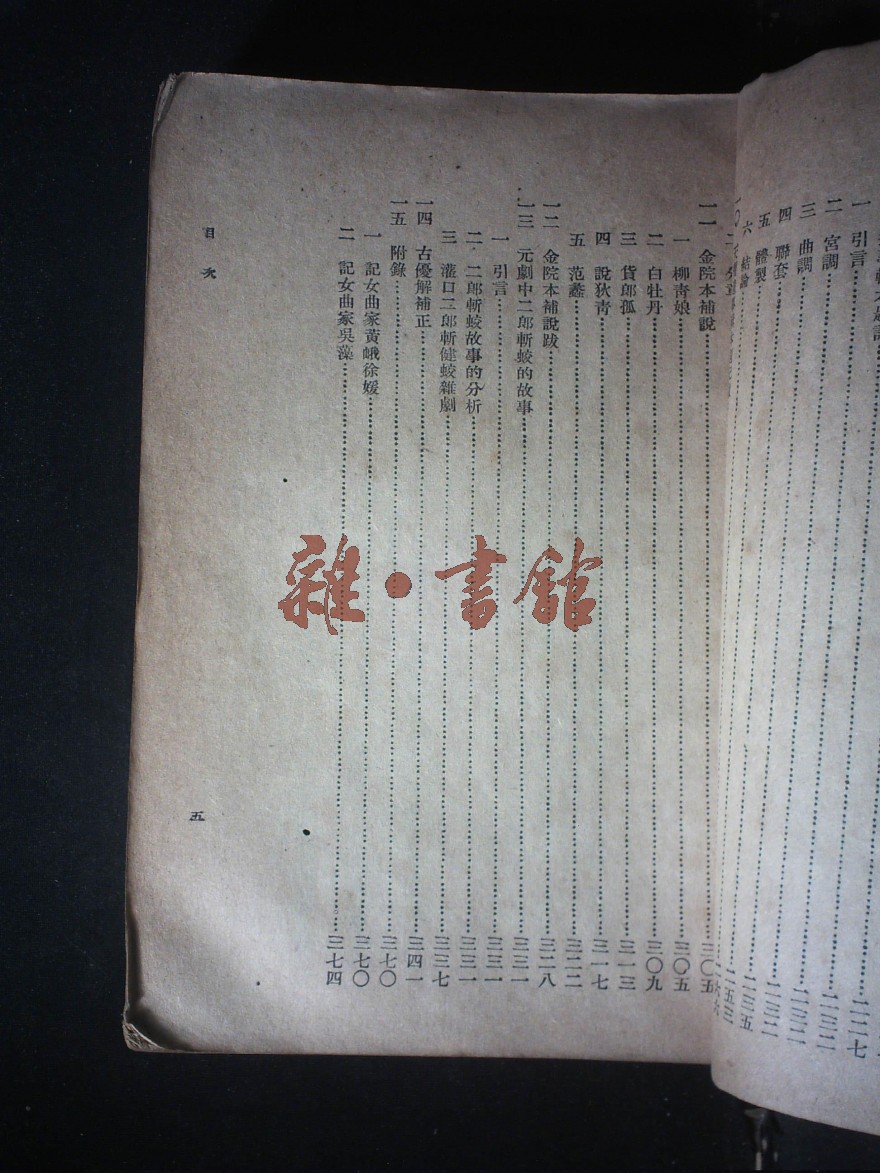 一 引言……二二七
二 宮調
三 曲調
四 聯套
五 體製
六 結論
一一 金院本補說……三〇五
一 柳青娘……三〇五
二 白牡丹……三〇九
三 貨郎孤……三一三
四 說狄青……三一七
五 范蠡……三二二
一二 金院本補說跋……三二八
一三 元劇中二郎斬蛟的故事……三三一
一 引言……三三一
二 二郎斬蛟故事的分析……三三一
三 灌口二郎斬健蛟雜劇……三三七
一四 古優解補正……三四一
一五 附錄……三七〇
一 記女曲家黃峨徐媛……三七〇
二 記女曲家吳藻……三七四
目次
五
雜·書館